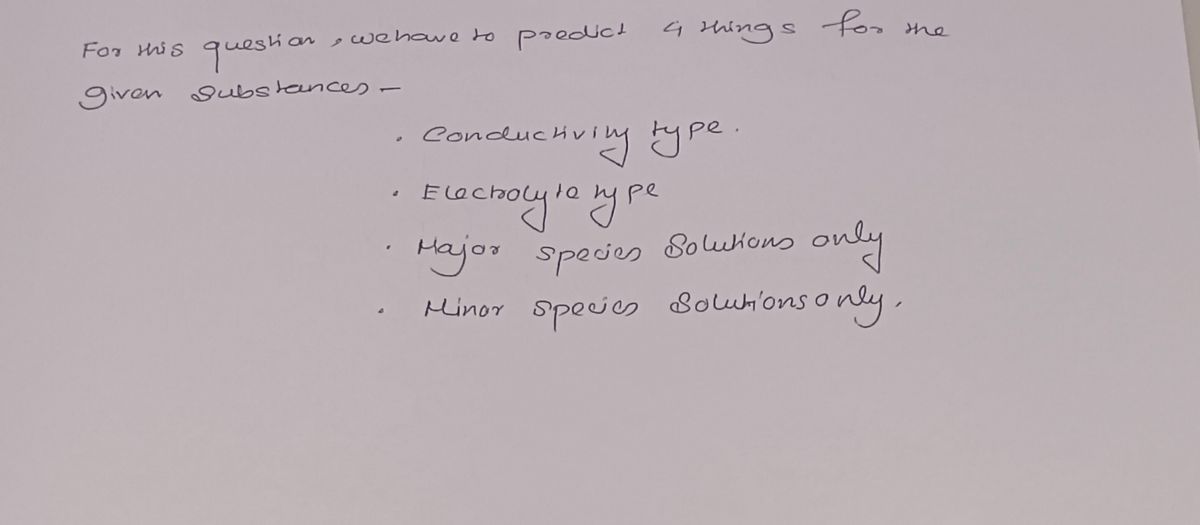 For this question, we have to predict 4 things for the
given substances -
. Conductivity type.
. Electrolyte type
. Major species Solutions only
. Minor species Solutions only.